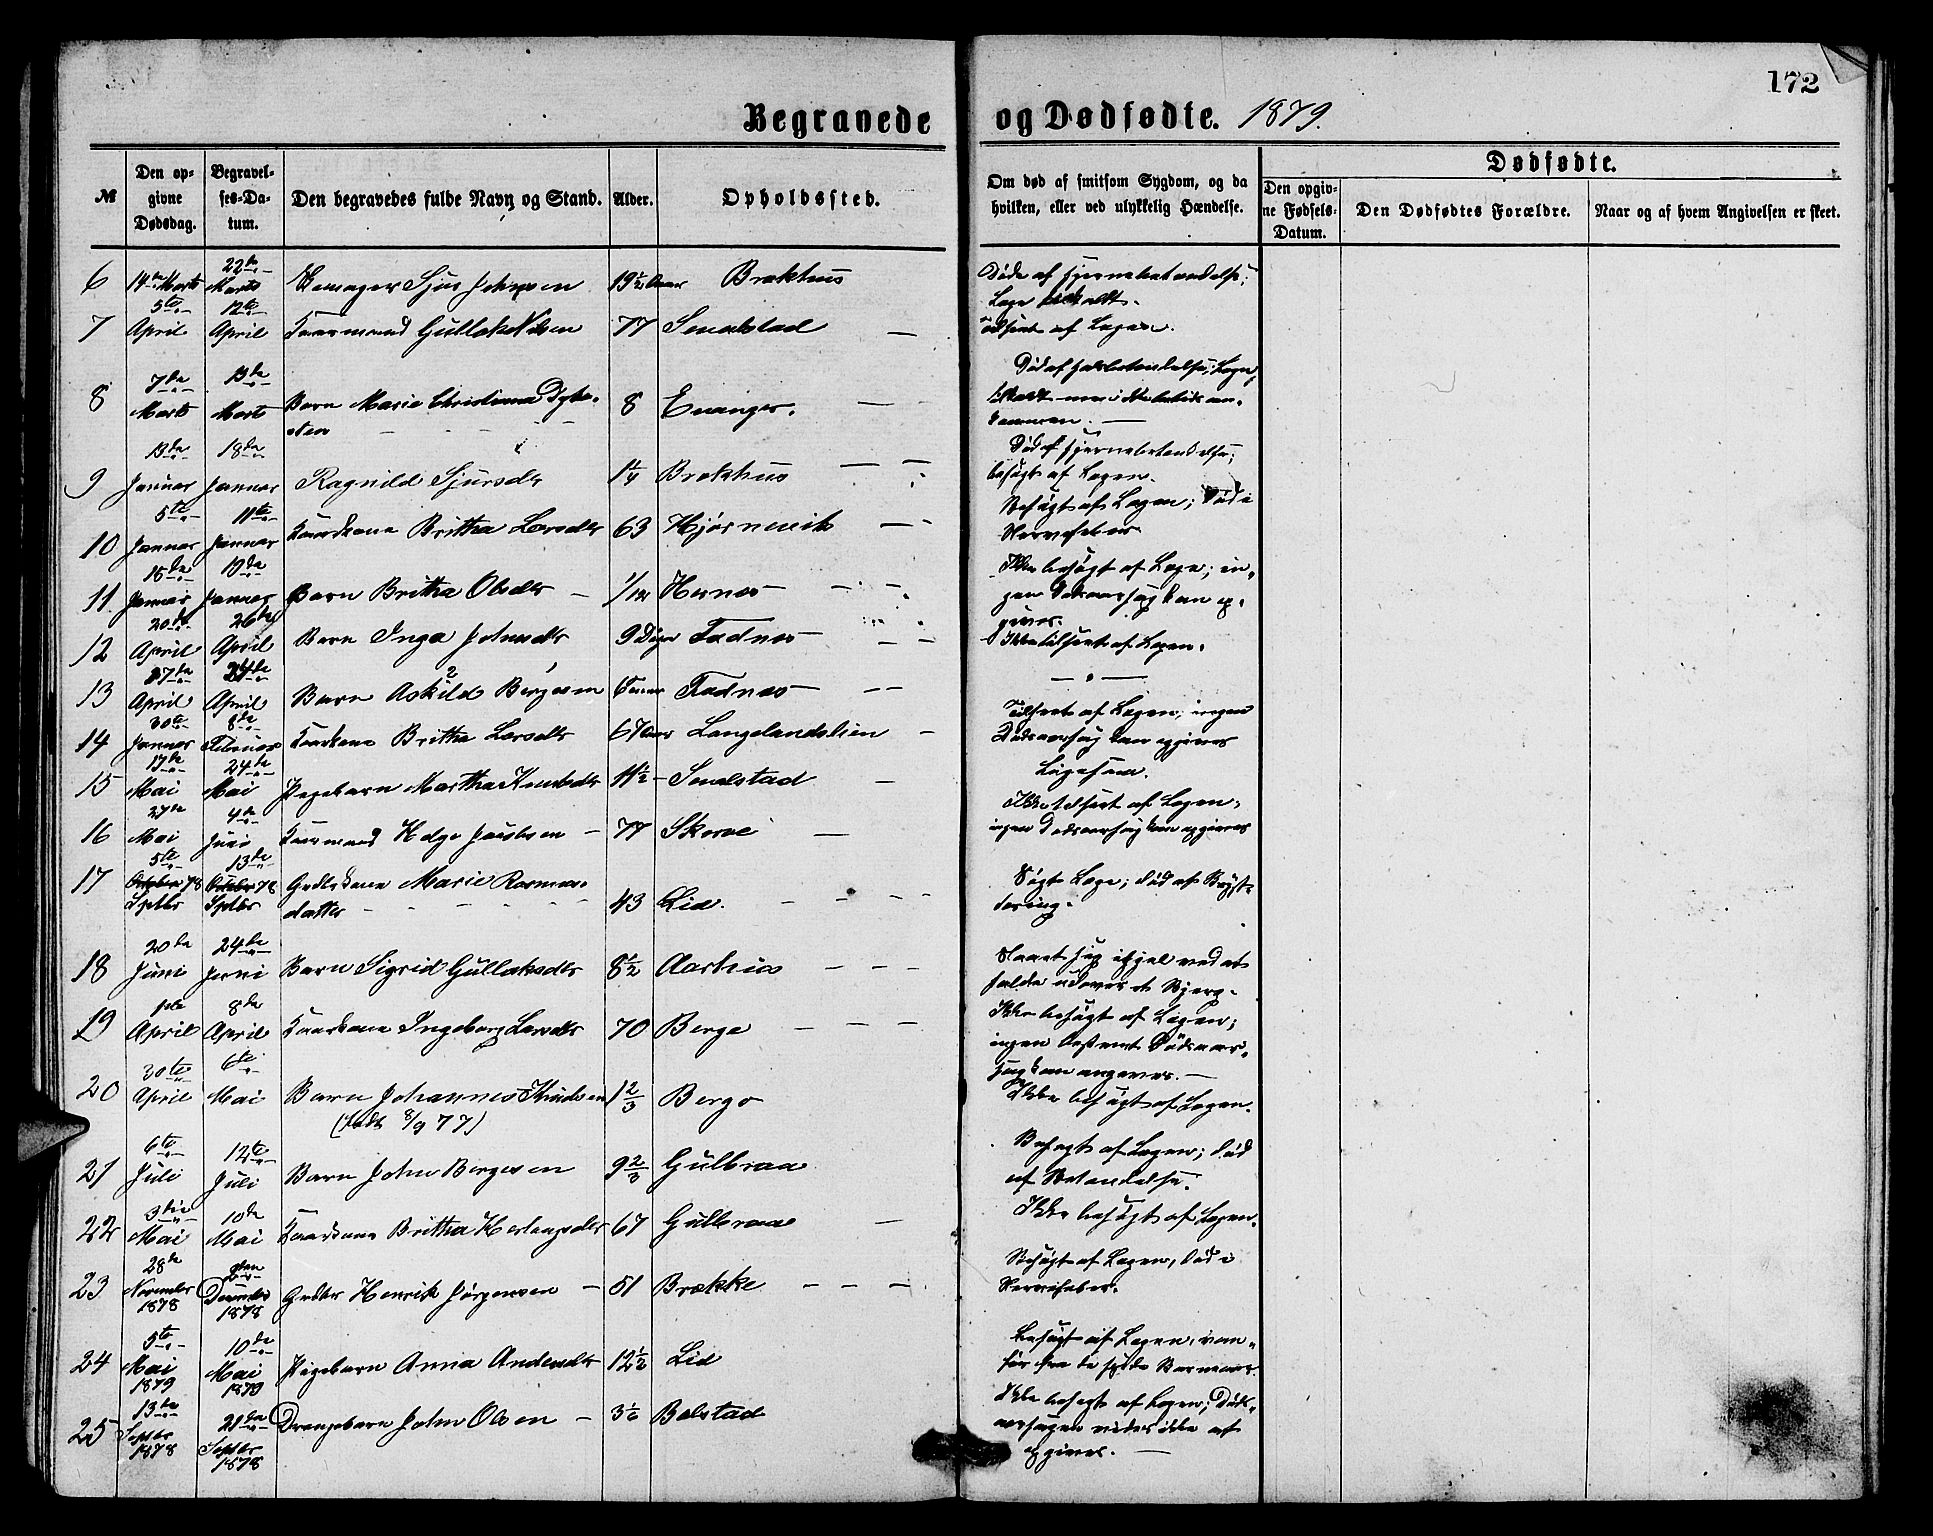 172
Begravede og Dødfødte. 1879.
№ | Den opgivne Dødsdag. | Begravelses-Datum. | Den begravedes fulde Navn og Stand. | Alder. | Opholdssted. | Om død af smitsom Sygdom, og da hvilken, eller ved ulykkelig Hændelse. | Dødfødte. | Den opgivne Fødsels-Datum. | Den Dødfødtes Forældre. | Naar og af hvem Angivelsen er skeet.
6 14de Marts 22de Marts Sjur Johnsen 19½ Aar Brækhus Døde af Hjernebetændelse; Læge
7 5te April 12te April Kaarmand Gullak Nilsen 77 Smalstad Tilseet af Lægen.
8 7de Marts 13de Marts Barn Marie Christiane 8 Evanger. Død af Halsbetændelse; Læge
9 13de Januar 18de Januar Ragnild Sjursdtr 1¼ Brækhus Død af Hjernebetændelse; besøgt af Lægen.
10 5te Januar 11te Januar Kaarkone Britha Larsdtr 63 Hjørnevik Besøgt af Lægen; Død i Nervefeber
11 15de Januar 19de Januar Barn Britha Olsdtr 1/12 Hernæs Ikke besøgt af Læge; ingen Dødsaarsag kan opgives.
12 20de April 26de April Barn Inga Johnsdtr 9 Dage Fadnæs Ikke tilseet af Lægen.
13 17de April 24de April Barn Askild Børgesen 6 Fadnæs — " —
14 30te Januar 8de Februar Kaarkone Britha Larsdtr 67 Aar Langelandslien Tilseet af Lægen; ingen Dødsaarsag kan opgives
15 17de Mai 24de Mai Pigebarn Martha Knudsdtr 11½ Smalstad Ligesaa.
16 27de Mai 4de Juni Kaarmand Helge Jacobsen 77 Skorve Ikke tilseet af Lægen, ingen Dødsaarsag kan opgives
17 5te October 78 Septbr 13de October 78 Septbr Gaardkone Marie Rasmusdatter 43 Lid. Søgt Læge; død af Brysttæring.
18 20de Juni 24de Juni Barn Sigrid Gullaksdtr 8½ Aarhus Slaaet sig ihjel ved at falde udover et Bjerg.
19 1ste April 8de April Kaarkone Ingeborg Larsdtr 70 Berge Ikke besøgt af Lægen; ingen bestemt Dødsaarsag kan angives.
20 30te April 6te Mai Barn Johannes Knudsen (født 8/9 77) 1⅔ Berge Ikke besøgt af Lægen.
21 6te Juli 12te Juli Barn John Børgesen 9⅔ Gulbraa Besøgt af Lægen; død af Betændelse.
22 3die Mai 10de Mai Kaarkone Britha Herlaugsdtr 67 Gulbraa Ikke besøgt af Lægen.
23 28de November 1878 December 1878 Gaardbr Henrik Jørgensen 51 Brække Besøgt af Lægen, død i Nervefeber.
24 5te Mai 1879 10de Mai 1879 Pigebarn Anna Andersdtr 12½ Lid Besøgt af Lægen, vanfør fra de spæde Barneaar.
25 13de Septbr 1878 21de Septbr 1878 Drengebarn John Olsen 3⅙ Bolstad Ikke besøgt af Lægen; Dødsaarsagen vides ikke at opgives.